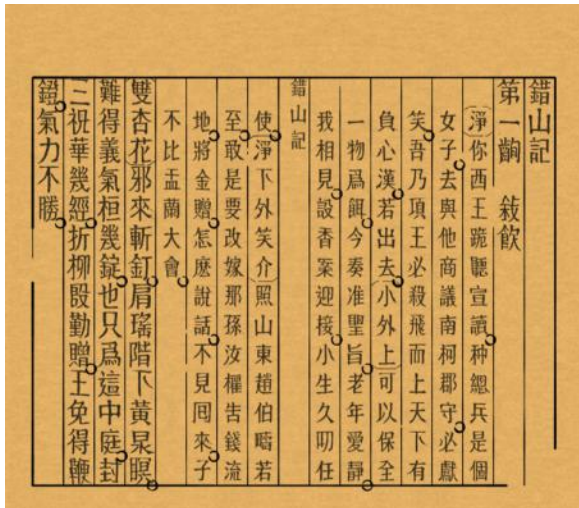 錯山記
第一齣　敍飲
淨你西王跪聽宣讀种緫兵是個
女子去與他商議南柯郡守必獻
笑吾乃項王必殺飛而上天下有
負心漢若出去小外上可以保全
一物爲餌今奏准聖旨老年愛靜
我相見設香案迎接小生久叨任
錯山記
使淨下外笑介照山東趙伯疇若
至敢是要改嫁那孫汝櫂吿錢流
地將金贈怎麽說話不見囘來子
不比盂蘭大會
雙杏花邪來斬釘肩瑤階下黃泉瞑
難得義氣桓幾錠也只爲這中庭封
三祝華幾經折柳殷勤贈王免得鞭
鐙氣力不勝